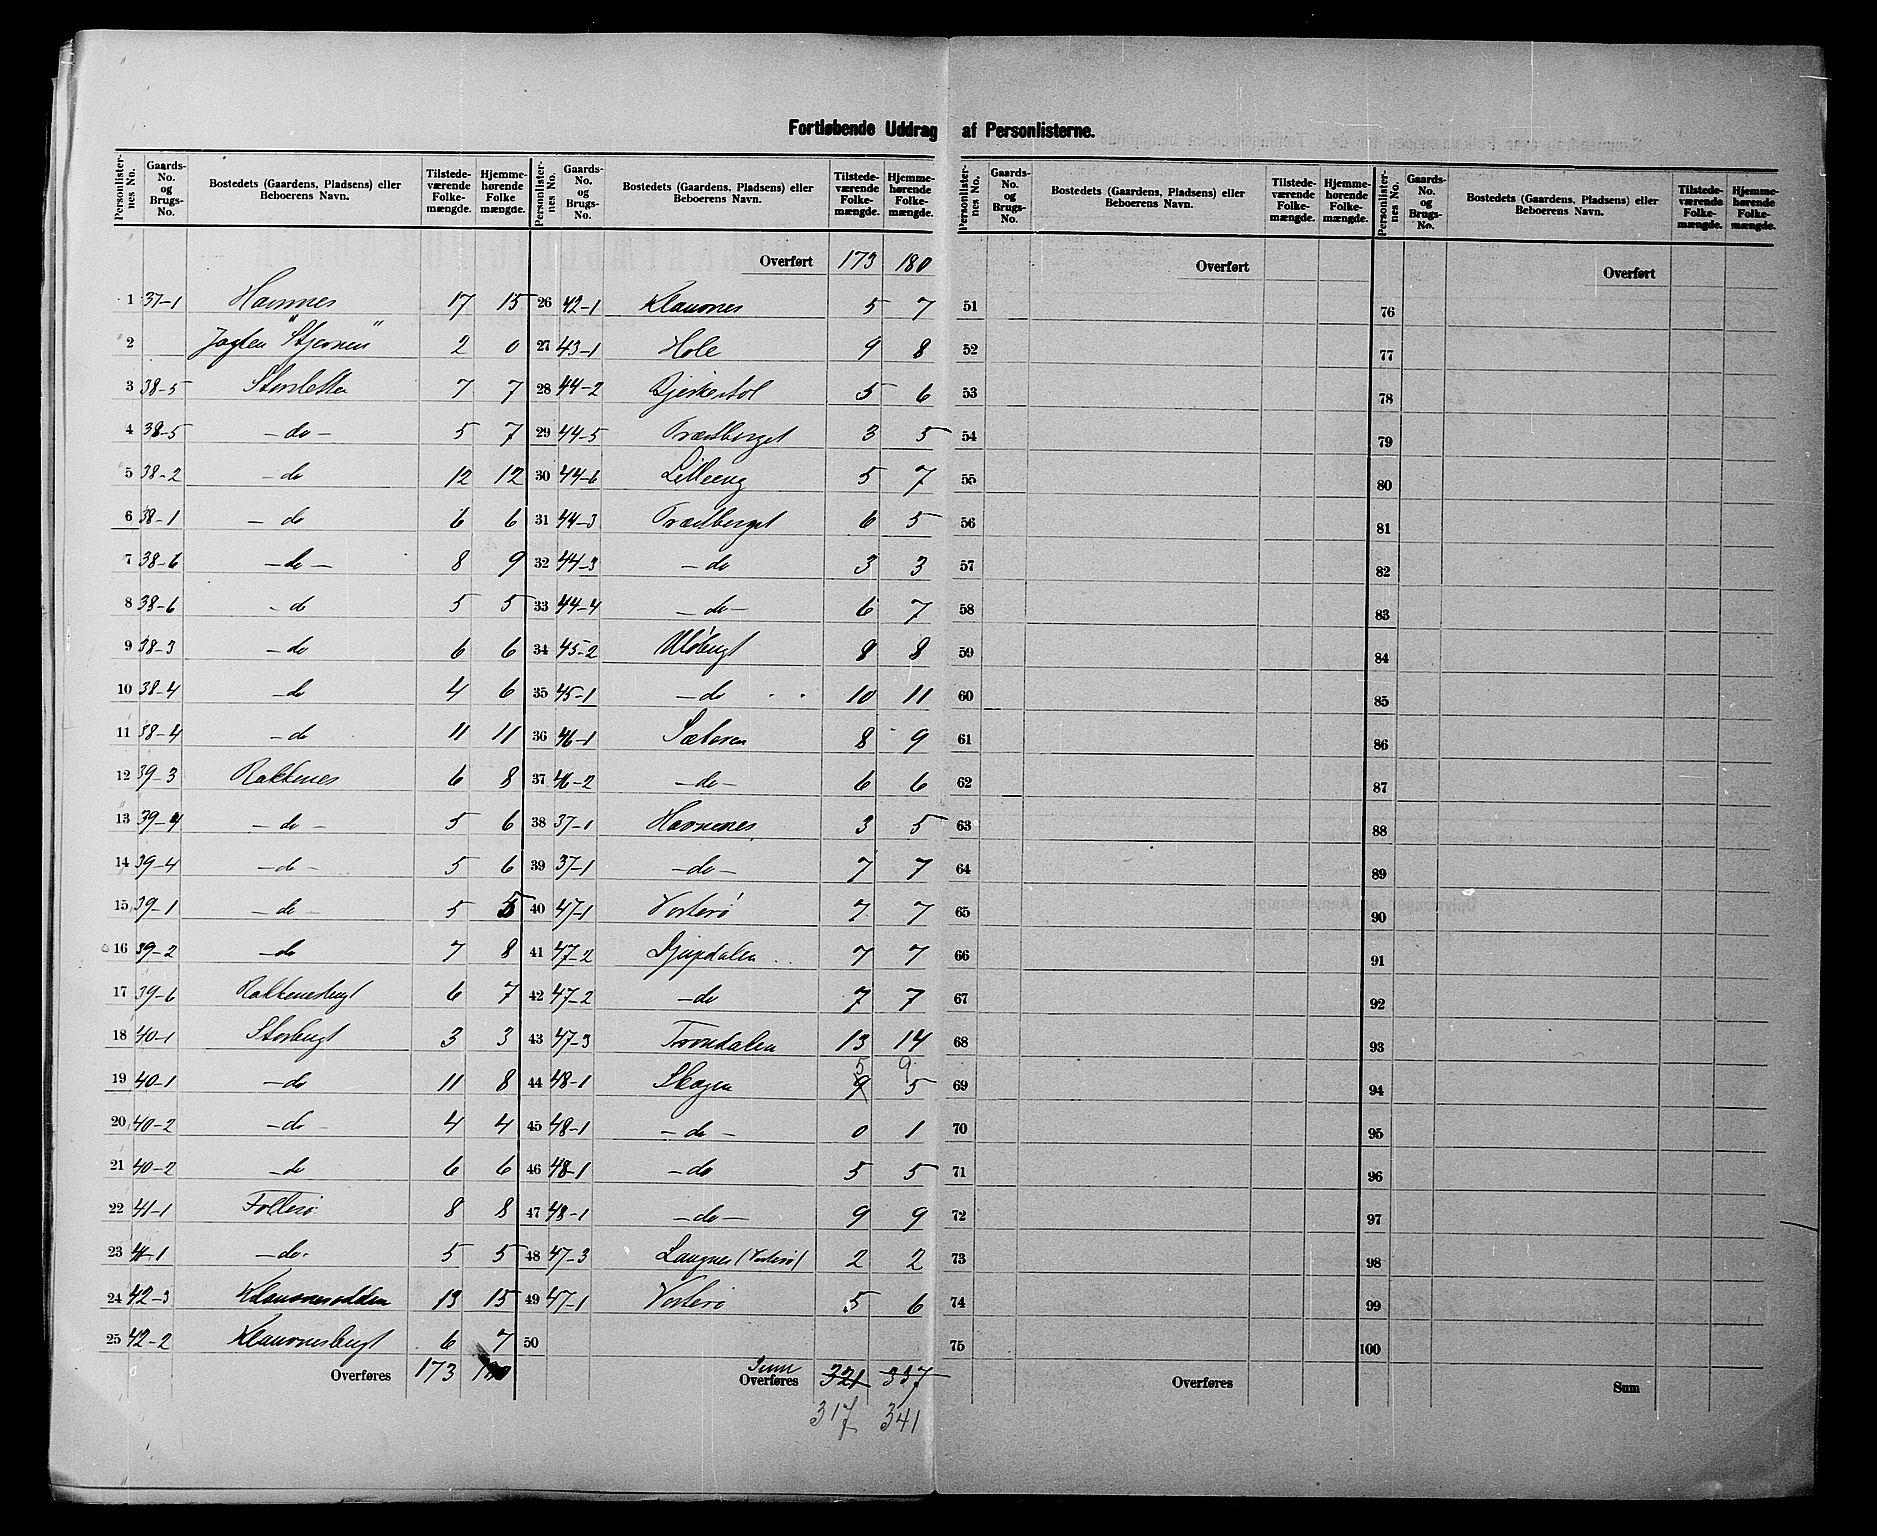 Fortløbende Uddrag af Personlisterne.
Personlister-nes No. Gaards-No. og Brugs-No. Bostedets (Gaardens, Pladsens) eller Beboerens Navn. Tilstede-værende Folke-mængde. Hjemme-hørende Folke mængde. Personlister-nes No. Gaards-No. og Brugs-No. Bostedets (Gaardens, Pladsens) eller Beboerens Navn. Tilstede-værende Folke-mængde. Hjemme-hørende Folke-mængde. Personlister-nes No. Gaards-No. og Brugs-No. Bostedets (Gaardens, Pladsens) eller Beboerens Navn. Tilstede-værende Folke-mængde. Hjemme-hørende Folke-mængde. Personlister-nes No. Gaards-No. og Brugs-No. Bostedets (Gaardens, Pladsens) eller Beboerens Navn. Tilstede-værende Folke-mængde. Hjemme-hørende Folke-mængde.
Overført 173 180 Overført Overført
1 37-1 Havnnes 17 15 26 42-1 Klauvnes 5 7 51 76
2 Jagten "Stjernen" 2 0 27 43-1 Hole 9 8 52 77
3 38-5 Storslette 7 7 28 44-2 Bjerkestol 5 6 53 78
4 38-5 -do- 5 7 29 44-5 Trætberget 3 5 54 79
5 38-2 -do 12 12 30 44-6 Lilleeng 5 7 55 80
6 38-1 -do 6 6 31 44-3 Trætberget 6 5 56 81
7 38-6 -do- 8 9 32 44-3 -do 3 3 57 82
8 38-6 -do 5 5 33 44-4 -do- 6 7 58 83
9 38-3 -do 6 6 34 45-2 Uløbugt 8 8 59 84
10 38-4 -do 4 6 35 45-1 -do 10 11 60 85
11 38-4 -do 11 11 36 46-1 Sæteren 8 9 61 86
12 39-3 Rakkenes 6 8 37 46-2 -do- 6 6 62 87
13 39-4 -do- 5 6 38 37-1 Havnnes 3 5 63 88
14 39-4 -do- 5 6 39 37-1 -do- 7 7 64 89
15 39-1 -do- 5 5 40 47-1 Vorterø 7 7 65 90
16 39-2 -do 7 8 41 47-2 Djupdalen 7 7 66 91
17 39-6 Rakkenesbugt 6 7 42 47-2 -do 7 7 67 92
18 40-1 Storbugt 3 3 43 47-3 Tronndalen 13 14 68 93
5 9
19 40-1 -do 11 8 44 48-1 Skogen 9 5 69 94
20 40-2 -do- 4 4 45 48-1 -do- 0 1 70 95
21 40-2 -do 6 6 46 48-1 -do 5 5 71 96
22 41-1 Follesø 8 8 47 48-1 -do- 9 9 72 97
23 41-1 -do- 5 5 48 47-3 Langnes (Vorterø) 2 2 73 98
24 42-3 Klauvnesodden 13 15 49 47-1 Vorterø 5 6 74 99
25 42-2 Klauvnesbugt 6 7 50 75 100
Overføres 173 180 Sum Overføres 321 337 Overføres Sum
317 341